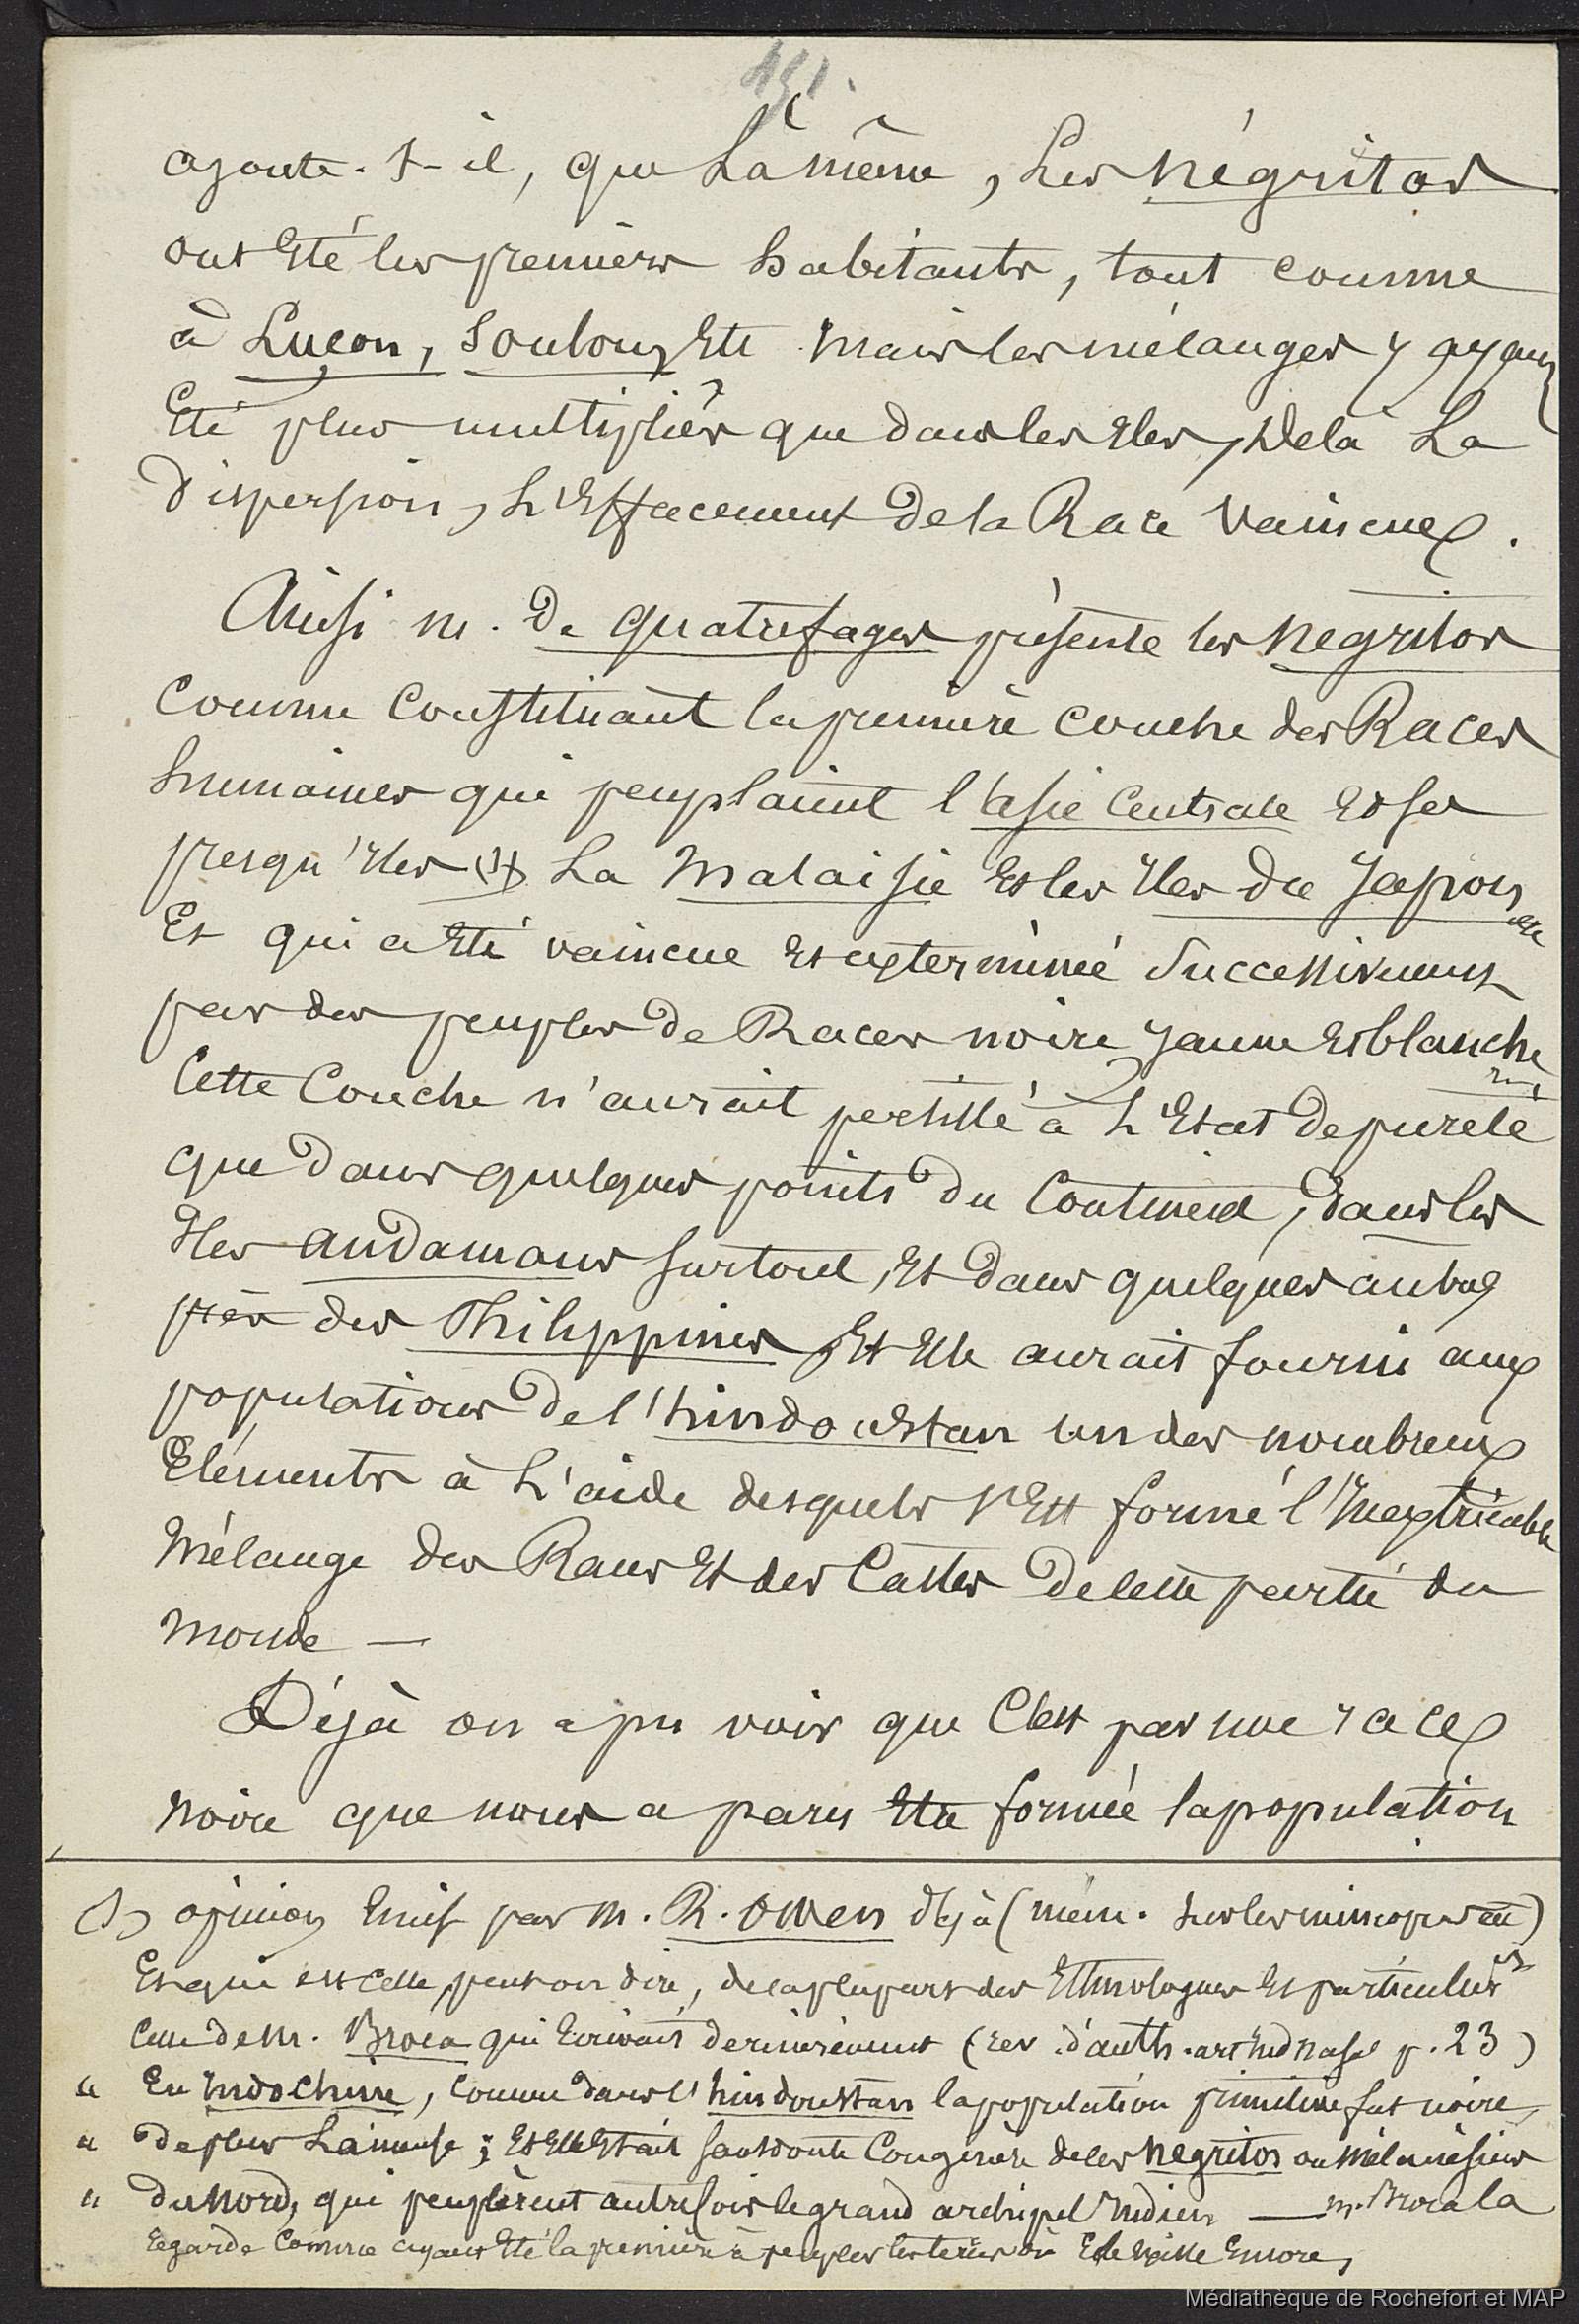 151.
ajoute-t-il, que là même, les négritos
ont été les premiers habitants, tout comme
à Luçon, Soulou, etc mais les mélanges y ayant
été plus multipliés que dans les Iles, de là la
dispersion, l'effacement de la Race vaincue.
Ainsi m. de quatrefages présente les négritos
comme constituant la première couche des Races
humaines qui peuplaient l'asie Centrale et ses
presqu'Iles (1) La Malaisie et les Iles du Japon etc
Et qui a été vaincue et exterminée successivement
par des peuples de Races noire jaune et blanche
Cette Couche n'aurait persisté à l'Etat de pureté
que dans quelques points du Continent, dans les
Iles andamans surtout, et dans quelques autres
près des Philippines, et Elle aurait fourni aux
populations de l'hindoustan un des nombreux
Eléments à l'aide desquels s'Est formé l'Inextricable
Mélange des Races et des Castes de cette partie du
monde —
Déjà on a pu voir que C'est par une race
noire que nous a paru Etre formée la population
(1) opinion Emise par m. R. Owen déjà (mém. sur les mincopies etc)
Et qui est celle, peut on dire, de la plupart des Ethnologues Et particulier
celle de m. Broca qui Ecrivait dernièrement (rev. d'anth. p. 23)
" En Indochine, comme dans l'hindoustan la population primitive fut noire,
" de plus Laineuse; Et Elle Etait sans doute Congénère de ces negritos ou mélanésiens
" du Nord, qui peuplèrent autrefois le grand archipel Indien — m. Broca la
regarde comme ayant Eté la première à peupler les terres où Elle Existe Encore,
Médiathèque de Rochefort et MAP